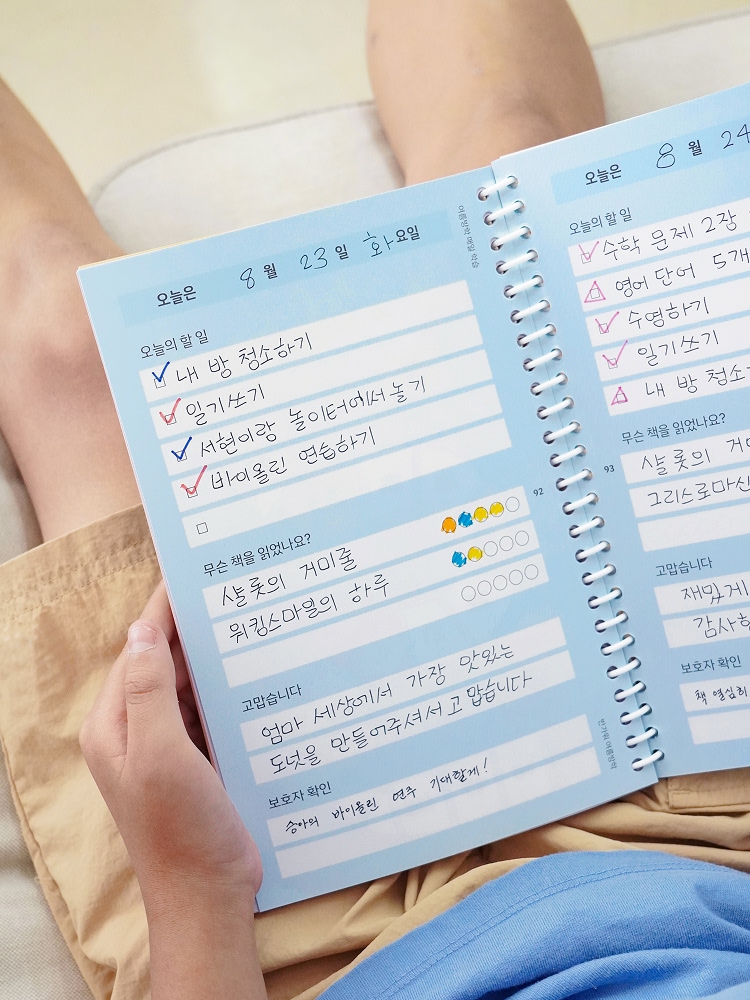 오늘은 8 월 23 일 화 요일
오늘의 할 일
내 방 청소하기
일기쓰기
서현이랑 놀이터에서 놀기
바이올린 연습하기
무슨 책을 읽었나요?
샬롯의 거미줄
위킹스마일의 하루
고맙습니다
엄마 세상에서 가장 맛있는
도넛을 만들어주셔서 고맙습니다
보호자 확인
승아의 바이올린 연주 기대할게!
92
오늘은 8 월 24
오늘의 할 일
수학 문제 2장
영어 단어 5개
수영하기
일기쓰기
내 방 청소
무슨 책을 읽었나요?
샬롯의
그리스로마신
고맙습니다
재밌게
감사
보호자 확인
책 열심히
93